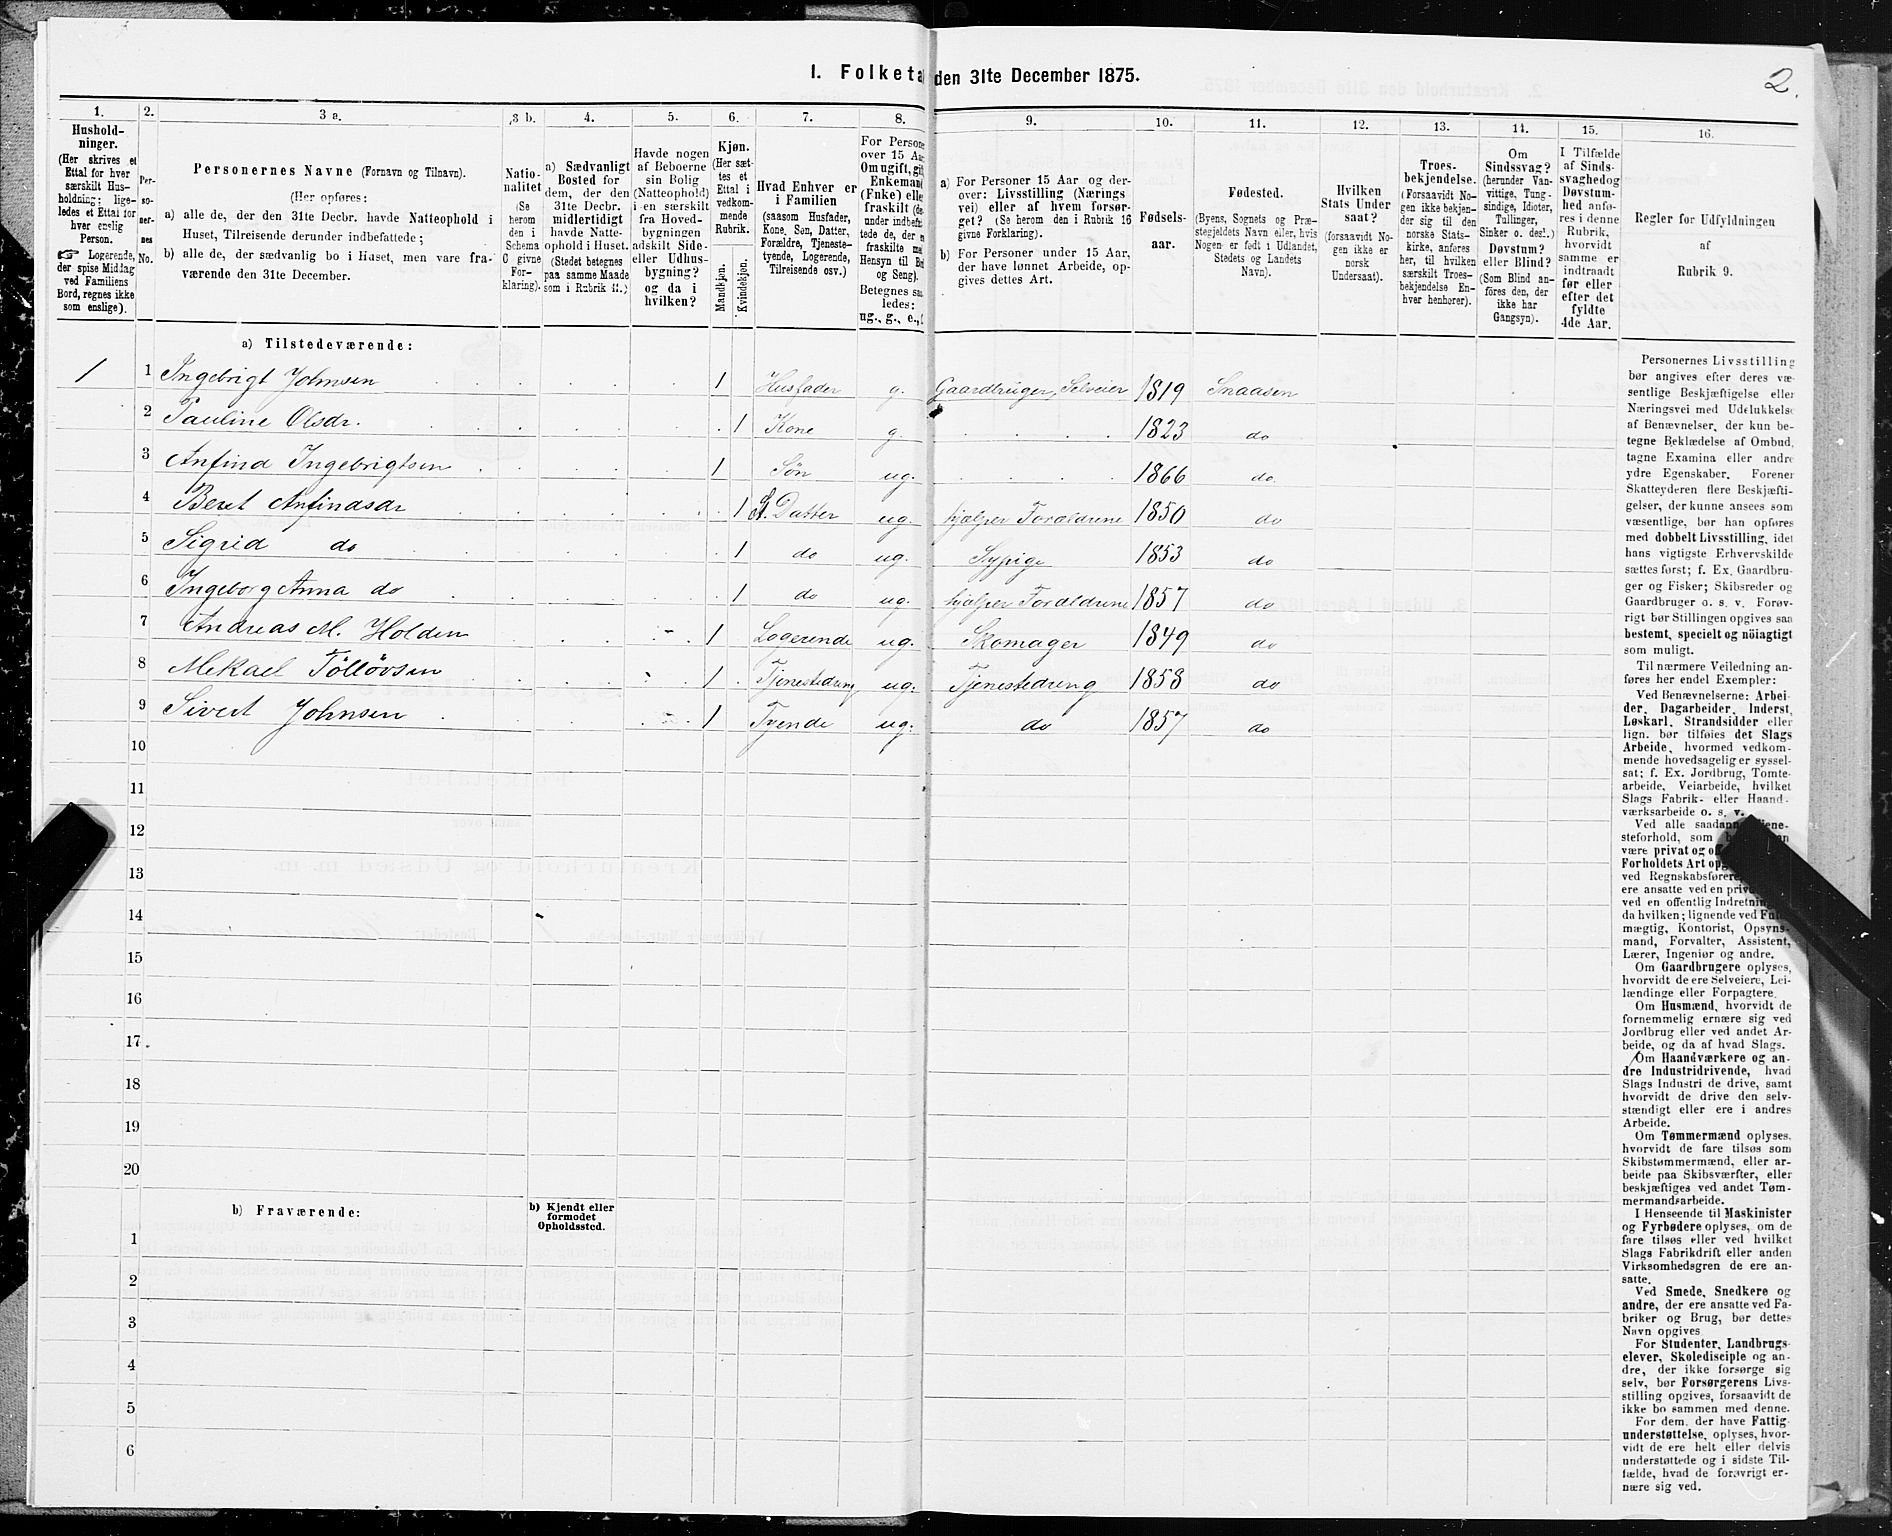 1. Folketæ den 31te December 1875.
2.
1. 2. 3 a. 3 b. 4. 5. 6. 7. 8. 9. 10. 11. 12. 13. 14. 15. 16.
Hushold-
ninger.
(Her skrives et
Ettal for hver
særskilt Hus-
holdning; lige-
ledes et Ettal for
hver enslig
Person.
☞ Logerende,
der spise Middag
ved Familiens
Bord, regnes ikke
som enslige).
Per-
so-
ner-
nes
No.
Personernes Navne (Fornavn og Tilnavn).
(Her opføres:
a) alle de, der den 31te Decbr. havde Natteophold i
Huset, Tilreisende derunder indbefattede;
b) alle de, der sædvanlig bo i Huset, men vare fra-
værende den 31te December.
Natio-
nalitet
(Se
herom
den i
Schema
C givne
For-
klaring).
a) Sædvanligt
Bosted for
dem, der den
31te Decbr.
midlertidigt
havde Natte-
ophold i Huset.
(Stedet betegnes
paa samme Maade
som i Rubrik 11.)
Havde nogen
af Beboerne
sin Bolig
(Natteophold)
i en særskilt
fra Hoved-
bygningen
adskilt Side-
eller Udhus-
bygning?
og da i
hvilken?
Kjøn.
(Her sæt-
tes et
Ettal i
vedkom-
mende
Rubrik.
Mandkjøn.
Kvindekjøn.
Hvad Enhver er
i Familien
(saasom Husfader,
Kone, Søn, Datter,
Forældre, Tjeneste-
tyende, Logerende,
Tilreisende osv.)
For Persone
over 15 Aa
Om ugift, gi
Enkemand
(Enke) elle
fraskilt (de
under indbefat
tede de, der e
fraskilte me
Hensyn til Bo
og Seng).
Betegnes saa
ledes:
ug., g., e., f
a) For Personer 15 Aar og der-
over: Livsstilling (Nærings
vei) eller af hvem forsør-
get? (Se herom den i Rubrik 16
givne Forklaring).
b) For Personer under 15 Aar,
der have lønnet Arbeide, op-
gives dettes Art.
Fødsels-
aar.
Fødested.
(Byens, Sognets og Præ-
stegjeldets Navn eller, hvis
Nogen er født i Udlandet,
Stedets og Landets
Navn).
Hvilken
Stats Under
saat?
(forsaavidt No-
gen ikke er
norsk
Undersaat).
Troes-
bekjendelse.
(Forsaavidt No-
gen ikke bekjen-
der sig til den
norske Stats-
kirke, anføres
her, til hvilken
særskilt Troes-
bekjendelse En-
hver henhører).
Om
Sindssvag?
(herunder Van-
vittige, Tung-
sindige, Idioter,
Tullinger,
Sinker o. desl.)
Døvstum?
eller Blind?
(Som Blind an-
føres den, der
ikke har
Gangsyn).
I Tilfælde
af Sinds-
svaghed og
Døvstum-
hed anfø-
res i denne
Rubrik,
hvorvidt
samme er
indtraadt
før eller
efter det
fyldte
4de Aar.
Regler for Udfyldningen
af
Rubrik 9.
a) Tilstedeværende:
1 1 Ingebrigt Johnsen 1 Husfader g. Gaardbruger, Selveier 1819 Snaasen
2 Pauline Olsdr. 1 Kone g. 1823 do
3 Anfind Ingebrigtsen 1 Søn ug. 1866 do.
4 Beret Anfindsdr 1 Datter ug. hjælper Forældrene 1850 do
5 Sigrid do 1 do ug. Sypige 1853 do
6 Ingeborg Anna do 1 do ug. hjælper Forældrene 1857 do
7 Andreas M. Holden 1 Logerende ug. Skomager 1849 do
8 Mekael Töllövsen 1 Tjenestedreng ug. Tjenestedreng 1858 do
9 Sivert Johnsen 1 Tyende ug. do 1857 do
10
11
12
13
14
15
16
17
18
19
20
b) Fraværende:
b) Kjendt eller
formodet
Opholdssted.
1
2
3
4
5
6
Personernes Livsstilling
bør angives efter deres væ-
sentlige Beskjæftigelse eller
Næringsvei med Udelukkelse
af Benævnelser, der kun be-
tegne Beklædelse af Ombud,
tagne Examina eller andre
ydre Egenskaber. Forener
Skatteyderen flere Beskjæfti-
gelser, der kunne ansees som
væsentlige, bør han opføres
med dobbelt Livsstilling, idet
hans vigtigste Erhvervskilde
sættes først; f. Ex. Gaardbru-
ger og Fisker; Skibsreder og
Gaardbruger o. s. v. Forøv-
rigt bør Stillingen opgives saa
bestemt, specielt og nöiagtigt
som muligt.
Til nærmere Veiledning an-
føres her endel Exempler:
Ved Benævnelserne: Arbei-
der, Dagarbeider, Inderst,
Løskarl, Strandsidder eller
lign. bør tilføies det Slags
Arbeide, hvormed vedkom-
mende hovedsagelig er syssel-
sat; f. Ex. Jordbrug, Tomte-
arbeide, Veiarbeide, hvilket
Slags Fabrik- eller Haand-
værksarbeide o. s. v.
Ved alle saadan jene-
steforhold, som b an
være privat og of
Forholdets Art opg
ved Regnskabsføre
ere ansatte ved en priv
ved en offentlig Indretnin
da hvilken; lignende ved Ful
mægtig, Kontorist, Opsyns-
mand, Forvalter, Assistent,
Lærer, Ingeniør og andre.
Om Gaardbrugere oplyses,
hvorvidt de ere Selveiere, Lei-
lændinge eller Forpagtere.
Om Husmænd, hvorvidt de
fornemmelig ernære sig ved
Jordbrug eller ved andet Ar-
beide, og da af hvad Slags.
Om Haandværkere og an-
dre Industridrivende, hvad
Slags Industri de drive, samt
hvorvidt de drive den selv-
stændigt eller ere i andres
Arbeide.
Om Tømmermænd oplyses,
hvorvidt de fare tilsøs som
Skibstømmermænd, eller ar-
beide paa Skibsværfter, eller
beskjæftiges ved andet Tøm-
mermandsarbeide.
I Henseende til Maskinister
og Fyrbødere oplyses, om de
fare tilsøs eller ved hvilket
Slags Fabrikdrift eller anden
Virksomhedsgren de ere an-
satte.
Ved Smede, Snedkere og
andre, der ere ansatte ved Fa-
briker og Brug, bør dettes
Navn opgives
For Studenter, Landbrugs-
elever, Skoledisciple og an-
dre, der ikke forsørge sig
selv, bør Forsørgerens Livs-
stilling opgives, forsaavidt de
ikke bo sammen med denne.
For dem, der have Fattig-
understøttelse, oplyses, hvor-
vidt de ere helt eller delvis
understøttede og i sidste Til-
fælde, hvad de forøvrigt er-
nære sig ved.